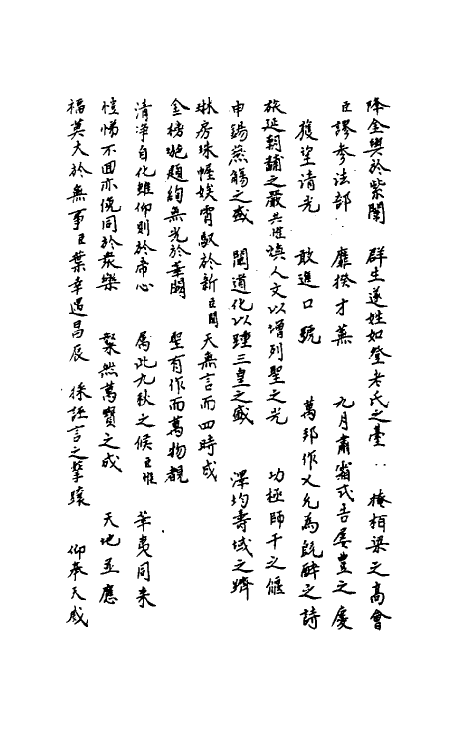 降金輿於紫闥 群生遂姓如登老氏之臺 掩柏梁之高會
臣謬參法部 靡揆才蕪 九月肅霜式吾屡豊之慶
獲望清光 敢進口號 萬邦作乂允為既醉之詩
旅延朝黼之嚴共惟 煥人文以增列聖之光 功極師干之偃
申錫燕觴之盛 闡道化以踵三皇之盛 澤均壽域之躋
琳房珠幄娭霄馭於新臣聞 天無言而四時成
金榜琁題絢無光於華闕 聖有作而萬物覩
清淨自化雖仰則於帝心 属此九秋之候臣惟 華夷同来
愷悌不回亦俛同於衆樂 粲然萬寳之成 天地並應
福莫大於無事臣葉幸遇昌辰 採謡言之擊壤 仰奉天威